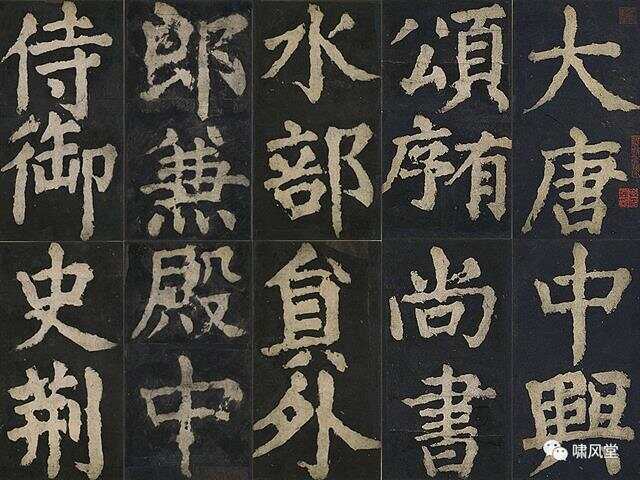 大唐中興
頌有序尚書
水部貟外
郎兼殿中
侍御史荆
啸风堂